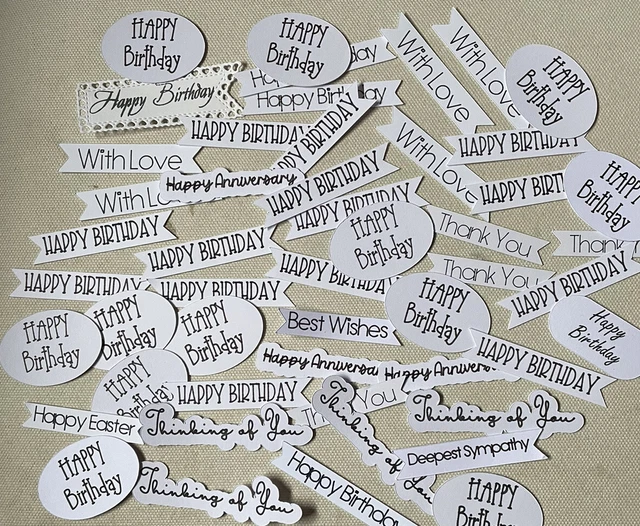 HAPPY
Birthday
HAPPY
Birthday
day
With Love
With Love
HAPPY
Birthday
Happy Birthday
Happy Birthday
HAPPY BIRTHDAY
HAPPY BIRTHDAY
HAPPY BIRTHDAY
With Love
With Love
With Lo
Happy Anniversary
HAPPY BIRTHDAY
HAPPY BIRT
HAPPY
Birthday
HAPPY BIRTHDAY
HAPPY BIRTHDAY
HAPPY BIRTHDAY
HAPPY
Birthday
Thank You
Thank
Thank You
HAPPY BIRTHDAY
HAPPY BIRTHDAY
HAPPY BIRTHDAY
HAPPY BIRTHDAY
HAPPY BIRTHDAY
HAPPY
Birthday
HAPPY
Birthday
HAPPY
Birthday
Best Wishes
HAPPY
Birthday
Happy
Birthday
HAPPY
Birthday
HAPPY BIRTHDAY
Happy Anniversa
Happy Annivers
HAPPY BIRTHDAY
You
Happy Easter
Thinking of You
Thinking of You
Thinking of You
Deepest Sympathy
HAPPY
Birthday
Thinking of You
Happy Birthday
HAPPY
Birthday